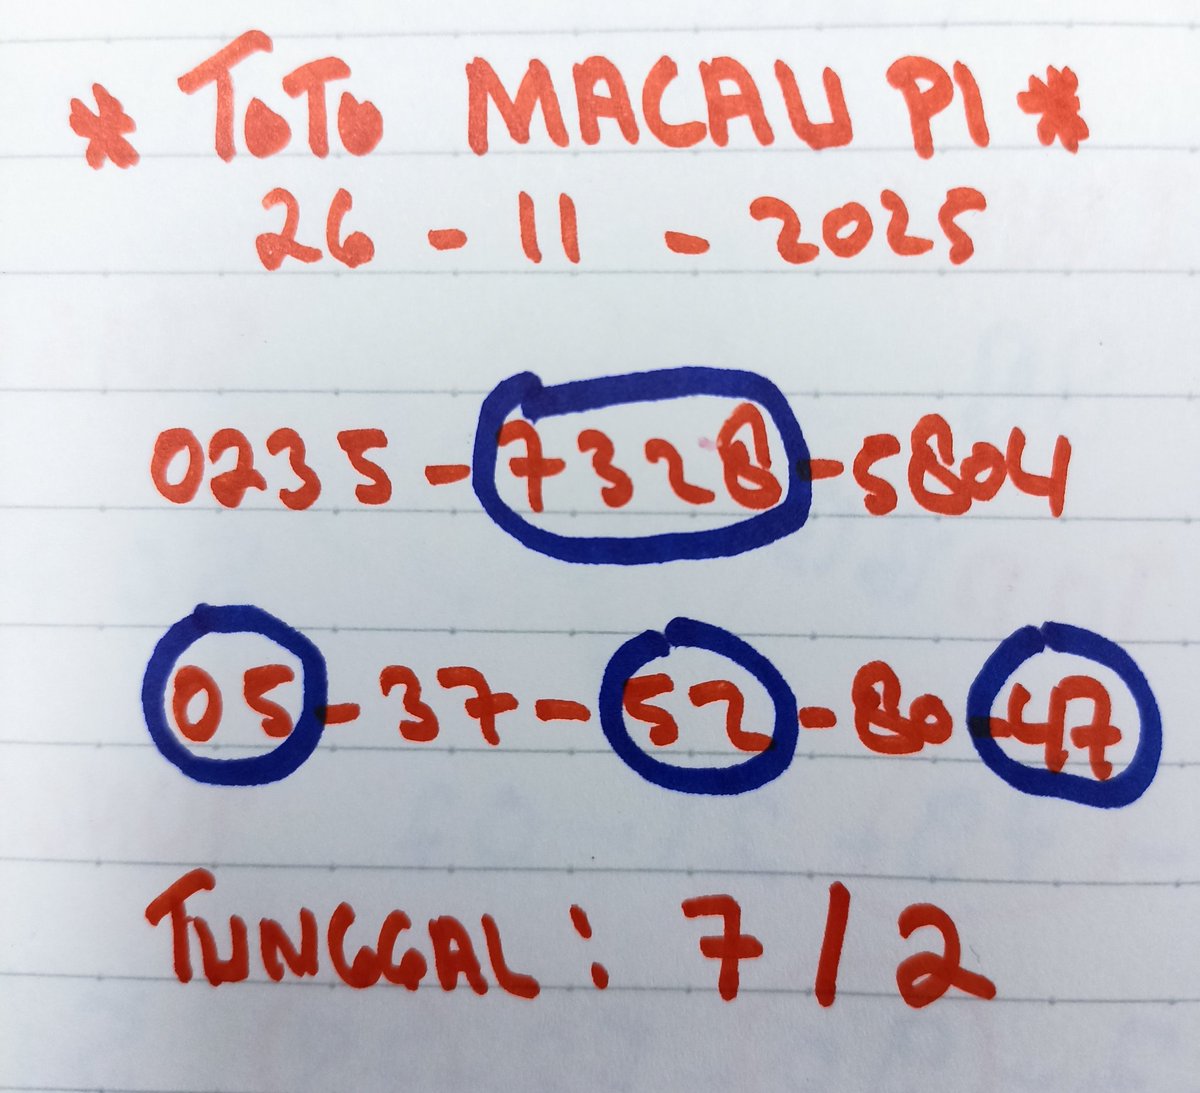 * TOTO MACAU P1 *
26 - 11 - 2025
0235 - 7328 - 5804
05 - 37 - 52 - 80 - 47
TUNGGAL : 7 / 2